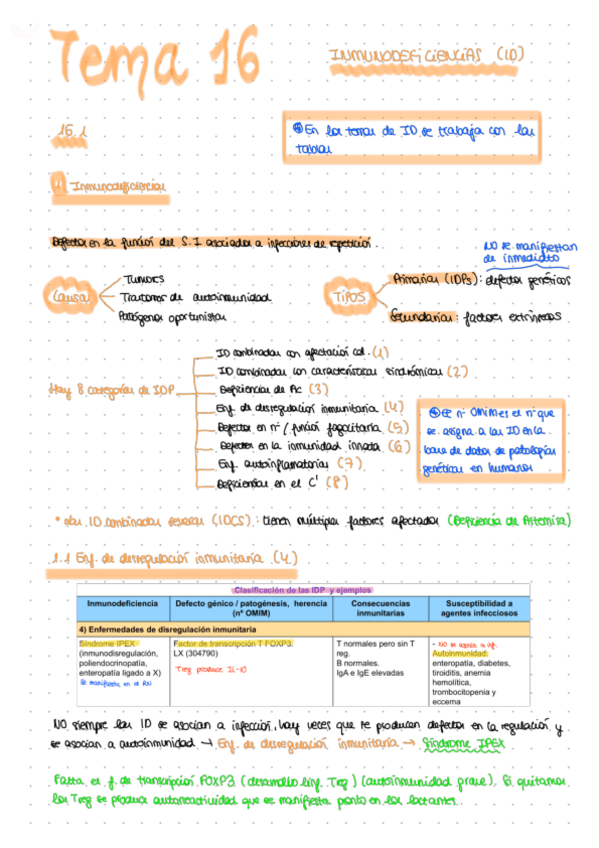 Tema 16
INMUNODEFICIENCIAS (ID)
16.1
En los temas de ID se trabaja con las
tablas
Inmunodeficiencias
Defectos en la función del S.I asociados a infecciones de repetición.
NO se manifiestan
de inmediato
Causas
Tumores
Trastornos de autoinmunidad
Patógenos oportunistas
TIPOS
Primarias (IDPs): defectos genéticos
Secundarias: factores extrínsecos
Hay 8 categorías de IDP
ID combinadas con afectación cel. (1)
ID combinadas con características sindrómicas (2)
Deficiencias de Ac (3)
Enf. de desregulación inmunitaria (4)
Defectos en nº / función fagocitaria (5)
Defectos en la inmunidad innata (6)
Enf. autoinflamatorias (7)
Deficiencias en el C' (8)
El nº OMIM es el nº que
se asigna a las ID en la
base de datos de patologías
genéticas en humanos
* Las ID combinadas severas (IDCS): tienen múltiples factores afectados (Deficiencia de Artemisa)
1.1 Enf. de desregulación inmunitaria (4.)
Clasificación de las IDP y ejemplos
Inmunodeficiencia
Defecto génico / patogénesis, herencia
(nº OMIM)
Consecuencias
inmunitarias
Susceptibilidad a
agentes infecciosos
4) Enfermedades de disregulación inmunitaria
Síndrome IPEX
(inmunodisregulación,
poliendocrinopatía,
enteropatía ligado a X)
Se manifiesta en el RN
Factor de transcripción T FOXP3.
LX (304790)
Treg produce IL-10
T normales pero sin T
reg.
B normales.
IgA e IgE elevadas
- NO se asocia a inf.
Autoinmunidad:
enteropatía, diabetes,
tiroiditis, anemia
hemolítica,
trombocitopenia y
eccema
NO siempre las ID se asocian a infección, hay veces que se producen defectos en la regulación y
se asocian a autoinmunidad → Enf. de desregulación inmunitaria → Síndrome IPEX
Falta el f. de transcripción FOXP3 (desarrollo linf. Treg) (autoinmunidad grave). Si quitamos
los Treg se produce autoreactividad que se manifiesta pronto en los lactantes.